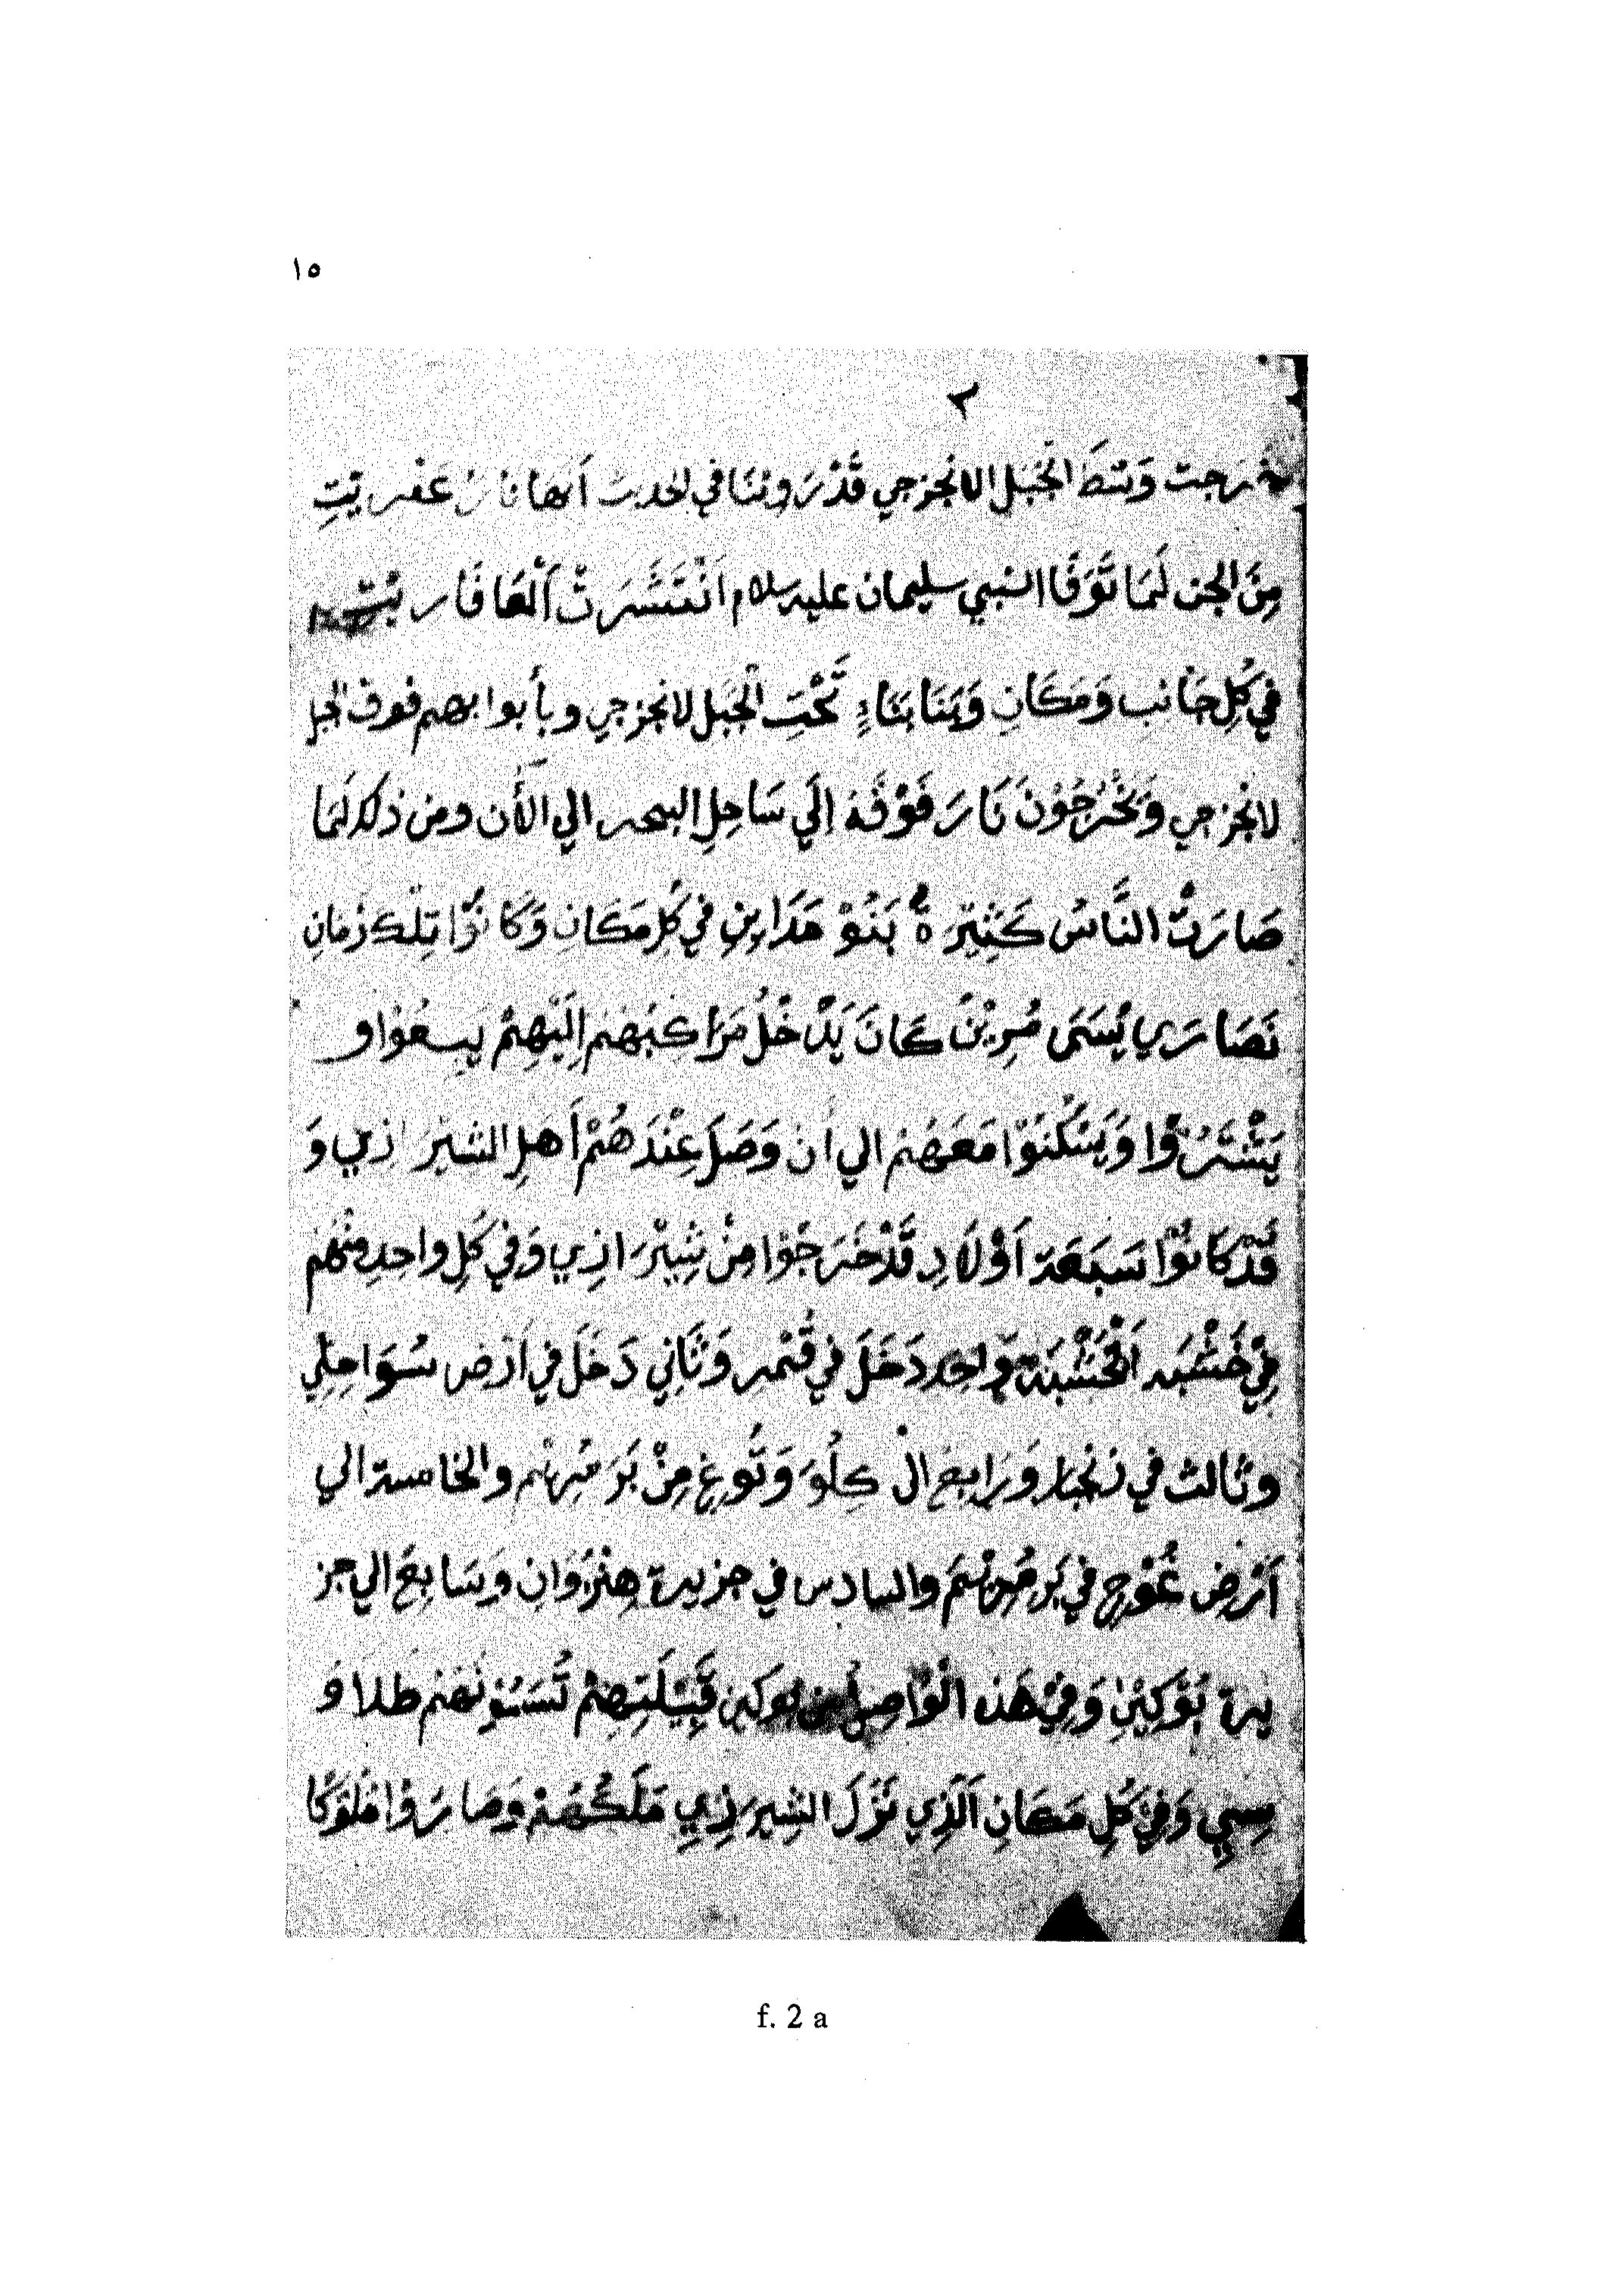 ١٥
٢
خرجت وَسَطَ الجَبَل الانجزجي قَدْ رَوِيْنَا في الحديث اَنها نارُ عَفْريتِ
مِنَ الجن لَمَا تَّوَفَّا النبي سليمان عليه سلام اَنْتَشَرَتْ اَلْعَافَارِيتُ
في كُلِ جَانِب وَمَكَانِ وَبَنَا بَنَاءٍ تَّحْتِ الْجَبَل لانجزجي وبأبوابهم فوق الجبل
لانجزجي وَيَخْرُجُوْنَ نَارَ فَوْقَهُ اِلَي سَاحِلِ البحر الي الأن ومن ذلك لَمَا
صَارَتُ النَّاسُ كَثِيْرَةُ بَنُوْ مَدَايِنِ في كُلِ مَكَانِ وَكَانُوْا تِلْكَ زمَانِ
نَصَارَي يُسَمَى مُرِيْنَ كَانَ يَدْخُلُ مَرَاكِبُهُم اِلَيْهِمْ يبيعُوْا و
يَشْتَرُوْا وَيَسْكُنُوْا مَعَهُمْ الي أن وَصَلَ عِنْدَهُمْ أَهلِ الشيْرَازي وَ
قَدْ كَانُوْا سَبَعَة اَوْلَادِ قَدْ خَرَجَوْا مِنْ شِيْرَازِي وَفي كُلِ واحِدِ مِنْهُم
فِيْ خَشَبَه اَلْخَشَبَة واحِد دَخَلَ في قُمْرِ وَثَانِي دَخَلَ في اَرْضِ سُوَاحِلِي
وثالث في زنجبار وَرَابِعَ الْ كِلُوَ وَتُوغِ مِنْ بَرَ مْرِيْم والخامسة الي
اَرْضِ غُوْجِ في بَر مْرِيْمَ والسادس في جزيرة هِنْزُوَانِ وَسَابِعَ الي جز
يرة بُوْكِيْنِ وَفِيْ هَذه الْوَاصِل من بوكين قَبِيْلَتِهِمْ تُسَمُوْنَهُمْ طَلاوُ
سِبِي وَفِي كُلِ مَكَانِ اَلَذِي نَزَلَ الشِيرَزِي مَلَكُهُمْ وَصَارُوْا مُلُوْكًا
f. 2 a